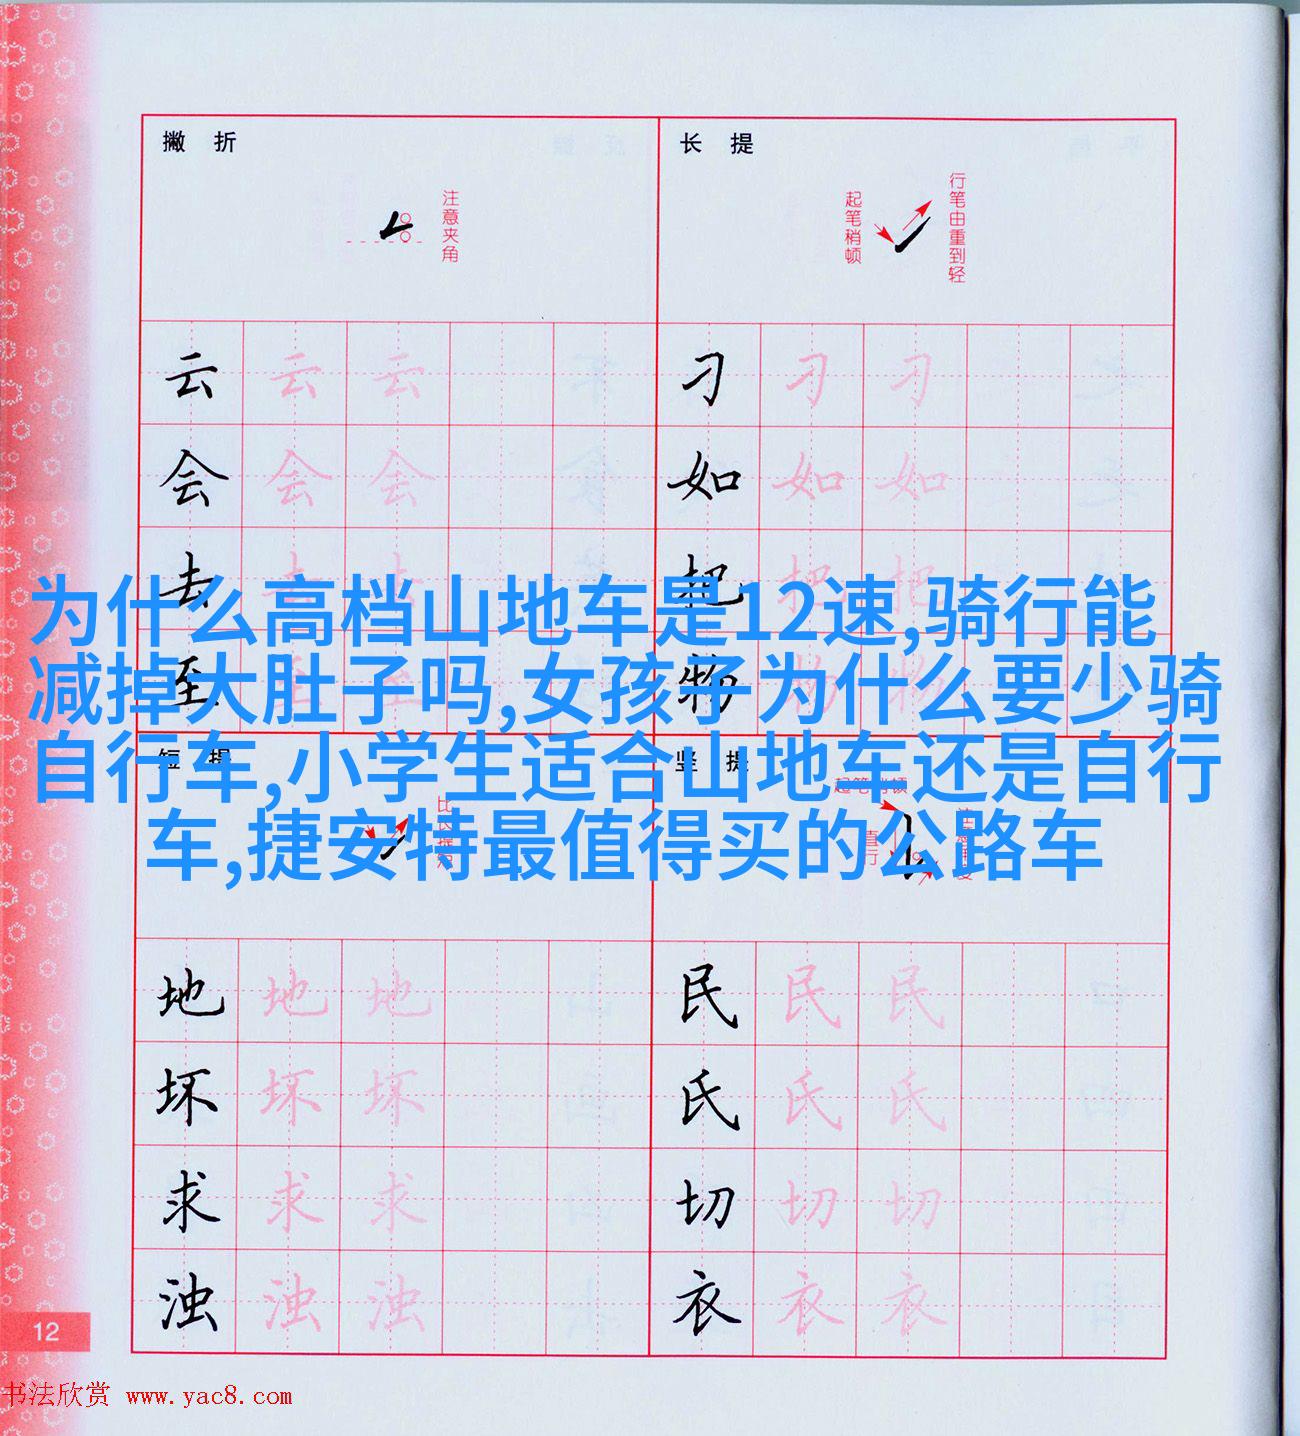 撇 折
注意夹角
云 云 云
会 会 会
去 去 去
至 至 至
长 提
起笔稍顿
行笔由重到轻
刁 刁 刁
如 如 如
把 把 把
物 物 物
为什么高档山地车是12速,骑行能
减掉大肚子吗,女孩子为什么要少骑
自行车,小学生适合山地车还是自行
车,捷安特最值得买的公路车
短 提
地 地 地
坏 坏 坏
求 求 求
浊 浊 浊
竖 提
起笔稍顿
直行
民 民 民
氏 氏 氏
切 切 切
衣 衣 衣
12
书法欣赏 www.yac8.com